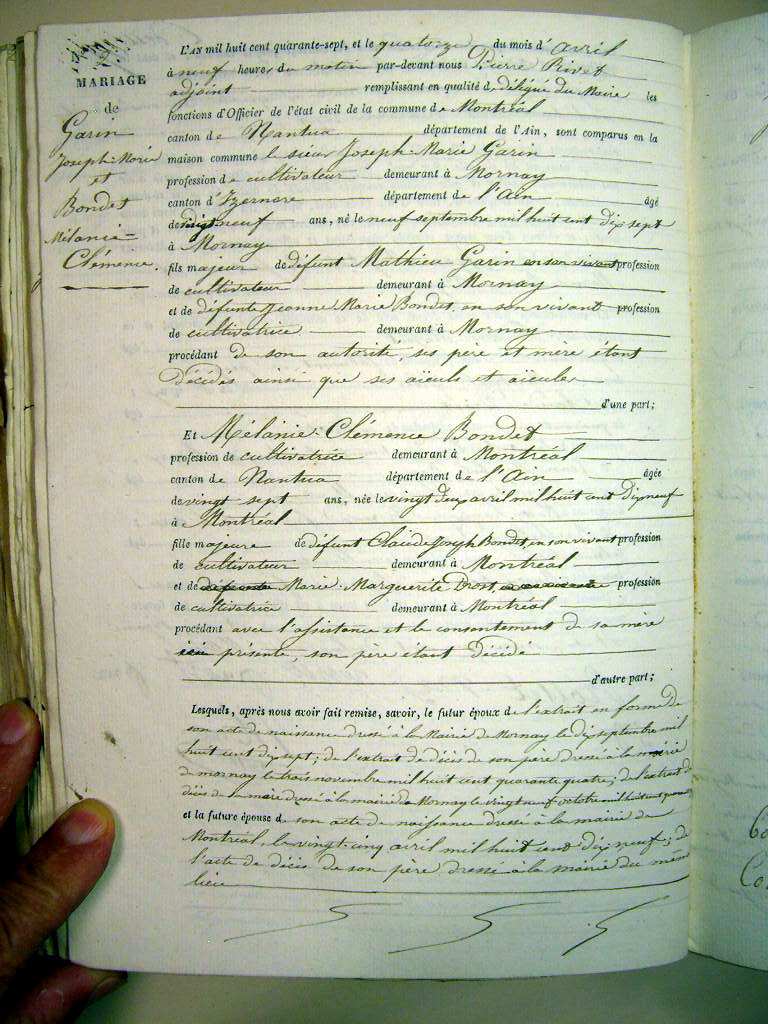 MARIAGE
de
Garin
Joseph-Marie
et
Bondet
Mélanie-
Clémence.
L'AN mil huit cent quarante-sept, et le quatorze du mois d'avril
à neuf heures du matin par-devant nous Pierre Rivet
adjoint remplissant en qualité de délégué du Maire les
fonctions d'Officier de l'état civil de la commune de Montréal
canton de Nantua département de l'Ain, sont comparus en la
maison commune le sieur Joseph-Marie Garin
profession de cultivateur demeurant à Mornay
canton d'Izernore département de l'Ain âgé
de vingt neuf ans, né le neuf septembre mil huit cent dix sept
à Mornay
fils majeur de défunt Mathieu Garin en son vivant profession
de cultivateur demeurant à Mornay
et de défunte Jeanne Marie Bondet, en son vivant profession
de cultivatrice demeurant à Mornay
procédant de son autorité, ses père et mère étant
décédés ainsi que ses aïeuls et aïeules
d'une part;
Et Mélanie-Clémence Bondet
profession de cultivatrice demeurant à Montréal
canton de Nantua département de l'Ain âgée
de vingt sept ans, née le vingt deux avril mil huit cent dix neuf
à Montréal
fille majeure de défunt Claude Joseph Bondet, en son vivant profession
de cultivateur demeurant à Montréal
et de défunte Marie-Marguerite profession
de cultivatrice demeurant à Montréal
procédant avec l'assistance et le consentement de sa mère
ici présente, son père étant décédé
d'autre part;
Lesquels, après nous avoir fait remise, savoir, le futur époux de l'extrait en forme de
son acte de naissance dressé à la Mairie de Mornay le dix septembre mil
huit cent dix sept; de l'extrait de décès de son père dressé à la mairie
de mornay le trois novembre mil huit cent quarante quatre; de l'extrait de
décès de sa mère dressé à la mairie de Mornay le vingt neuf octobre mil huit cent
et la future épouse de son acte de naissance dressé à la mairie de
Montréal, le vingt-cinq avril mil huit cent dix neuf; de
l'acte de décès de son père dressé à la mairie du même
lieu